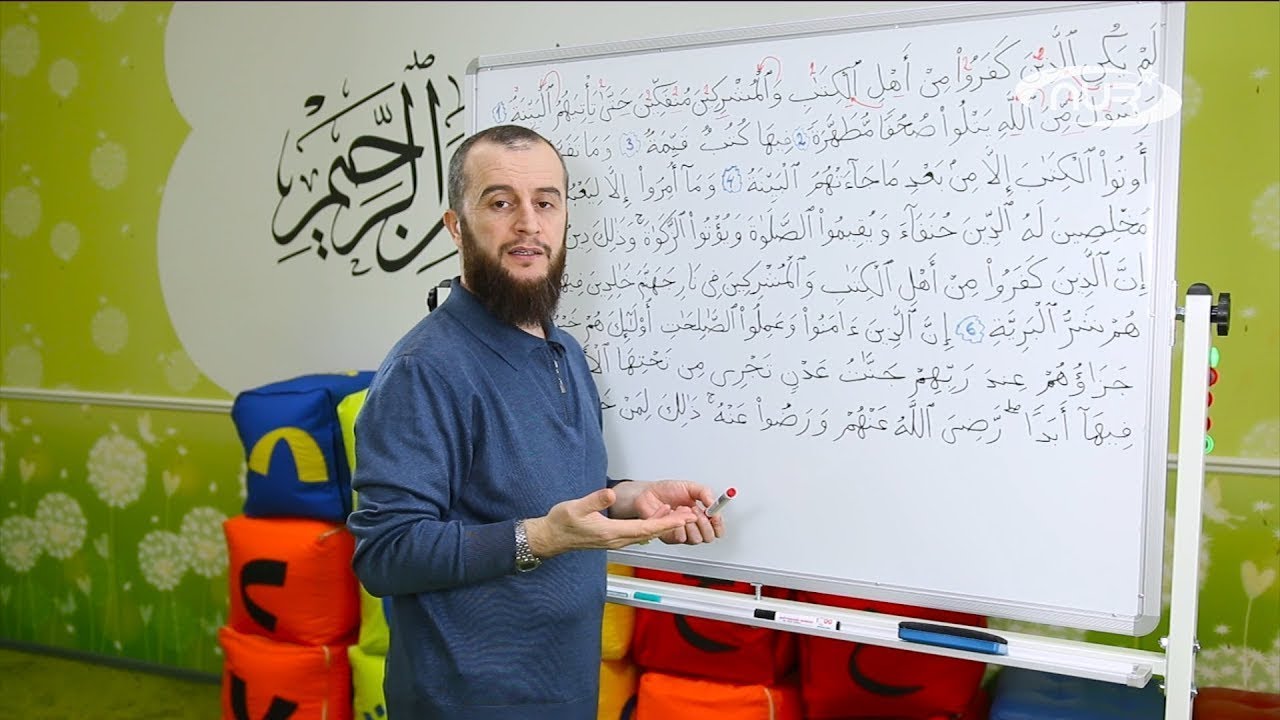 لَمْ يَكُنِ ٱلَّذِينَ كَفَرُوا۟ مِنْ أَهْلِ ٱلْكِتَٰبِ وَٱلْمُشْرِكِينَ مُنفَكِّينَ حَتَّىٰ تَأْتِيَهُمُ ٱلْبَيِّنَةُ ١
رَسُولٌ مِّنَ ٱللَّهِ يَتْلُوا۟ صُحُفًا مُّطَهَّرَةً ٢ فِيهَا كُتُبٌ قَيِّمَةٌ ٣ وَمَا تَفَ
أُوتُوا۟ ٱلْكِتَٰبَ إِلَّا مِنۢ بَعْدِ مَا جَآءَتْهُمُ ٱلْبَيِّنَةُ ٤ وَمَآ أُمِرُوٓا۟ إِلَّا لِيَعْبُ
مُخْلِصِينَ لَهُ ٱلدِّينَ حُنَفَآءَ وَيُقِيمُوا۟ ٱلصَّلَوٰةَ وَيُؤْتُوا۟ ٱلزَّكَوٰةَ ۚ وَذَٰلِكَ دِينُ
إِنَّ ٱلَّذِينَ كَفَرُوا۟ مِنْ أَهْلِ ٱلْكِتَٰبِ وَٱلْمُشْرِكِينَ فِى نَارِ جَهَنَّمَ خَٰلِدِينَ فِيهَا
هُمْ شَرُّ ٱلْبَرِيَّةِ ٦ إِنَّ ٱلَّذِينَ ءَامَنُوا۟ وَعَمِلُوا۟ ٱلصَّٰلِحَٰتِ أُو۟لَٰٓئِكَ هُمْ خَيْ
جَزَآؤُهُمْ عِندَ رَبِّهِمْ جَنَّٰتُ عَدْنٍ تَجْرِى مِن تَحْتِهَا ٱلْأَ
فِيهَآ أَبَدًا ۖ رَّضِىَ ٱللَّهُ عَنْهُمْ وَرَضُوا۟ عَنْهُ ۚ ذَٰلِكَ لِمَنْ خَ
ٱلرَّحِيمِ
NUR